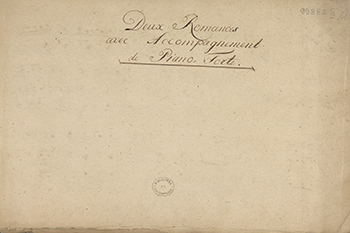 Deux Romances
avec Accompagnement
de Piano Forte.